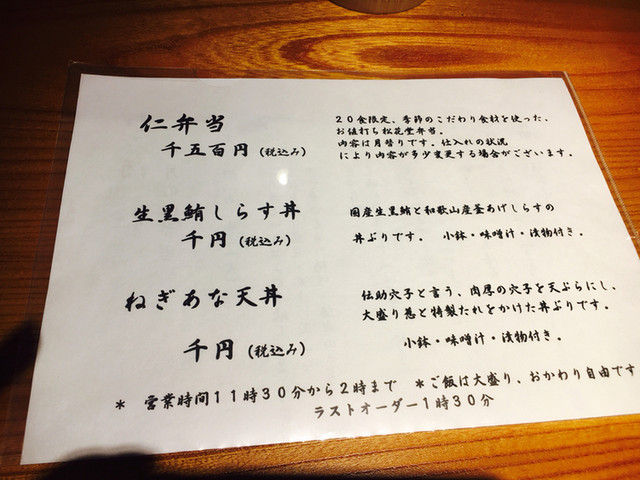 仁弁当
千五百円（税込み）
２０食限定、季節のこだわり食材を使った、
お値打ち松花堂弁当。
内容は月替りです。仕入れの状況
により内容が多少変更する場合がございます。
生黒鮪しらす丼
千円（税込み）
国産生黒鮪と和歌山産釜あげしらすの
丼ぶりです。　小鉢・味噌汁・漬物付き。
ねぎあな天丼
千円（税込み）
伝助穴子と言う、肉厚の穴子を天ぷらにし、
大盛り葱と特製たれをかけた丼ぶりです。
小鉢・味噌汁・漬物付き。
＊　営業時間１１時３０分から２時まで　＊ご飯は大盛り、おかわり自由です
ラストオーダー１時３０分